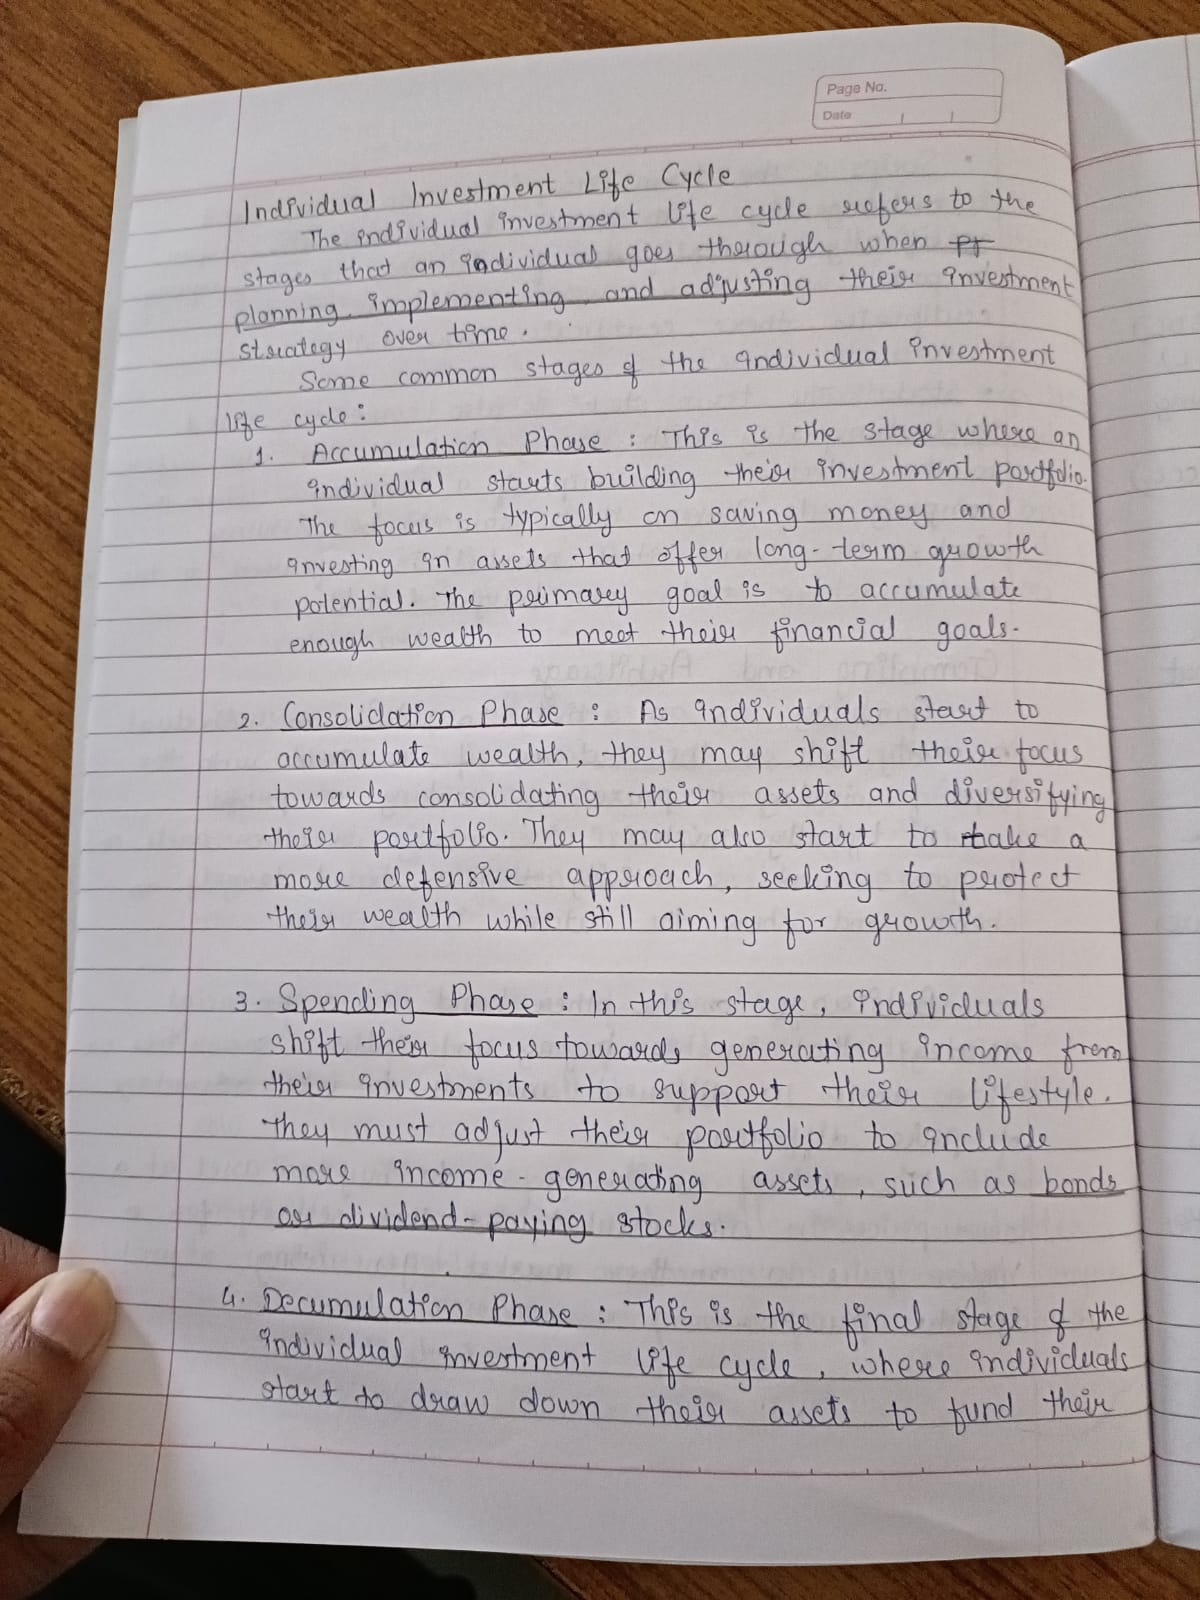 Page No.
Date
Individual Investment Life Cycle
The individual investment life cycle refers to the
stages that an individual goes through when
planning, implementing, and adjusting their investment
strategy over time.
Some common stages of the individual investment
life cycle:
1. Accumulation Phase : This is the stage where an
individual starts building their investment portfolio.
The focus is typically on saving money and
investing in assets that offer long-term growth
potential. The primary goal is to accumulate
enough wealth to meet their financial goals.
2. Consolidation Phase : As individuals start to
accumulate wealth, they may shift their focus
towards consolidating their assets and diversifying
their portfolio. They may also start to take a
more defensive approach, seeking to protect
their wealth while still aiming for growth.
3. Spending Phase : In this stage, individuals
shift their focus towards generating income from
their investments to support their lifestyle.
They must adjust their portfolio to include
more income-generating assets, such as bonds
or dividend-paying stocks.
4. Decumulation Phase : This is the final stage of the
individual investment life cycle, where individuals
start to draw down their assets to fund their